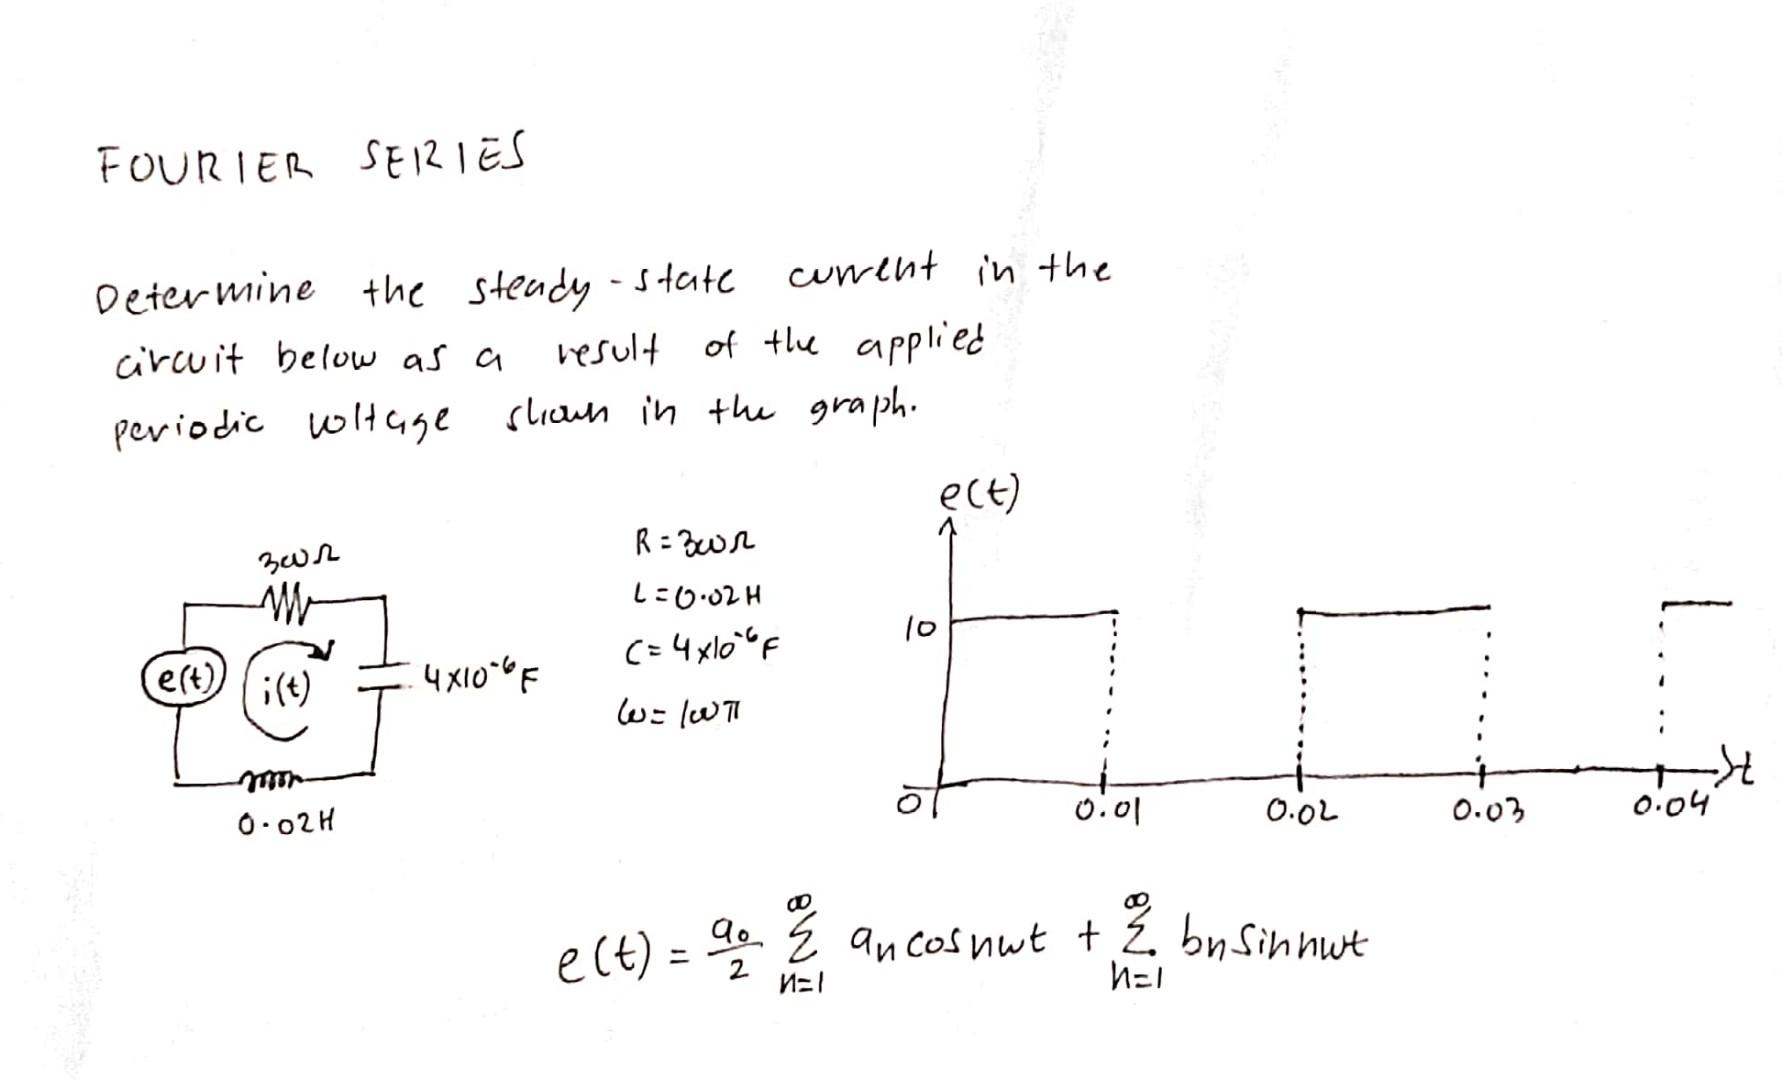 FOURIER SERIES
Determine the steady-state current in the
circuit below as a result of the applied
periodic voltage shown in the graph.
e(t)
300Ω
R = 300Ω
L = 0.02H
10
C = 4x10⁻⁶F
e(t)
i(t)
4x10⁻⁶F
ω = 100π
0
0.01
0.02
0.03
0.04
t
0.02H
e(t) = a₀/2 ∞Σn=1 an cos nwt + ∞Σn=1 bn sin nwt